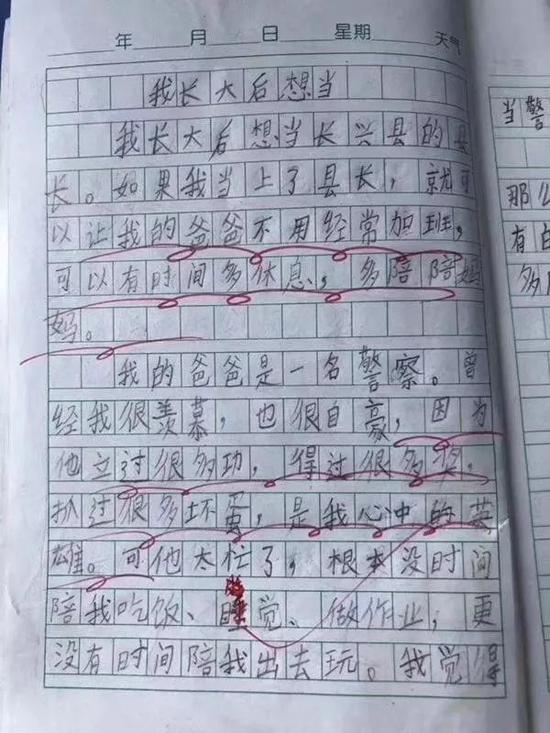 年 月 日 星期 天气
我长大后想当
我长大后想当长兴县的县
长。如果我当上了县长,就可
以让我的爸爸不用经常加班,
可以有时间多休息,多陪陪妈
妈。
我的爸爸是一名警察。曾
经我很羡慕,也很自豪,因为
他立过很多功,得过很多奖,
抓过很多坏蛋,是我心中的英
雄。可他太忙了,根本没时间
陪我吃饭、睡觉、做作业,更
没有时间陪我出去玩。我觉得
当警
那么
有的
多